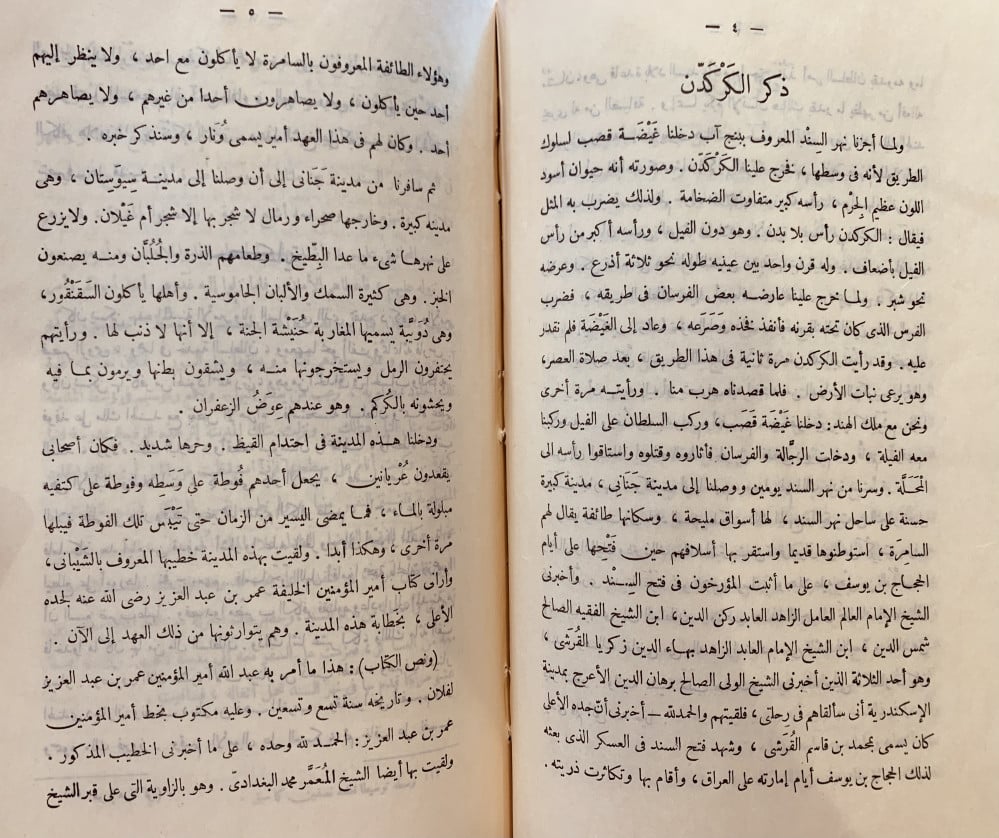 — ٤ —
ذكر الكَرْكَدّن
ولما أجزنا نهر السنْد المعروف ببنج آب دخلنا غَيْضَة قصب لسلوك
الطريق لأنه فى وسطها، فخرج علينا الكَرْكَدّن. وصورته أنه حيوان أسود
اللون عظيم الجِرْم، رأسه كبير متفاوت الضخامة. ولذلك يضرب به المثل
فيقال: الكركدن رأس بلا بدن. وهو دون الفيل، ورأسه أكبر من رأس
الفيل بأضعاف. وله قرن واحد بين عينيه طوله نحو ثلاثة أذرع. وعرضه
نحو شبر. ولما خرج علينا عارضه بعض الفرسان فى طريقه، فضرب
الفرس الذى كان تحته بقرنه فأنفذ فخذه وصَرَعه، وعاد إلى الغَيْضَة فلم نقدر
عليه. وقد رأيت الكركدن مرة ثانية فى هذا الطريق، بعد صلاة العصر،
وهو يرعى نبات الأرض. فلما قصدناه هرب منا. ورأيتـه مرة أخرى
ونحن مع ملك الهند: دخلنا غَيْضَة قَصَب، وركب السلطان على الفيل وركبنا
معه الفيلة، ودخلت الرجَّالة والفرسان فأثاروه وقتلوه واستاقوا رأسه الى
المَحَلَّة. وسرنا من نهر السند يومين ووصلنا إلى مدينة جَنَانى، مدينة كبيرة
حسنة على ساحل نهر السند، لها أسواق مليحة، وسكانها طائفة يقال لهم
السامِرَة، استوطنوها قديما واستقر بها أسلافهم حين فَتْحها على أيام
الحجاج بن يوسف، على ما أثبت المؤرخون فى فتح السِنْد. وأخبرنى
الشيخ الإمام العالم العامل الزاهد العابد ركن الدين، ابن الشيخ الفقيه الصالح
شمس الدين، ابن الشيخ الإمام العابد الزاهد بهاء الدين زكريا القُرَشى،
وهو أحد الثلاثة الذين أخبرنى الشيخ الولى الصالح برهان الدين الأعرج بمدينة
الإسكندرية أنى سألقاهم فى رحلتى، فلقيتهم والحمد لله — أخبرنى أن جده الأعلى
كان يسمى بمحمد بن قاسم القُرَشى، وشهد فتح السند فى العسكر الذى بعثه
لذلك الحجاج بن يوسف أيام إمارته على العراق، وأقام بها وتكاثرت ذريته.
— ٥ —
وهؤلاء الطائفة المعروفون بالسامرة لا يأكلون مع احد، ولا ينظر إليهم
أحد حين يأكلون، ولا يصاهرون أحدا من غيرهم، ولا يصاهرهم
أحد. وكان لهم فى هذا العهد أمير يسمى وُنَار، وسنذكر خبره.
ثم سافرنا من مدينة جَنانى إلى أن وصلنا إلى مدينـة سِيوَسْتان، وهى
مدينه كبيرة. وخارجها صحراء ورمال لا شجر بها إلا شجر أم غَيْلان. ولا يزرع
على نهرهـا شىء ما عدا البِطِّيخ. وطعامهم الذرة والجُلُبَّان ومنـه يصنعون
الخبز. وهى كثيرة السمك والألبان الجاموسية. وأهلها يأكلون السَقَنْقُور،
وهى دُوَيْبَّة يسميها المغاربة حُنَيْشة الجنة، إلا أنها لا ذنب لها. ورأيتهم
يحتفرون الرمل ويستخرجونها منـه، ويشقون بطنها ويرمون بمـا فيه
ويحشونه بالكُركم. وهو عندهم عِوَضُ الزعفران.
ودخلنا هـذه المدينة فى احتدام القيظ. وحرها شديد. فكان أصحابى
يقعدون عُرْيانين، يجعل أحدهم فُوطة على وَسَطه وفوطة على كتفيه
مبلولة بالماء، فمـا يمضى اليسير من الزمان حتى تَيْبَس تلك الفوطة فيبلها
مرة أخرى، وهكذا أبدا. ولقيت بهذه المدينة خطيبها المعروف بالشَيْبانى،
وأرانى كتاب أمير المؤمنين الخليفة عمر بن عبد العزيز رضى الله عنه لجده
الأعلى، بخَطابة هذه المدينة. وهم يتوارثونها من ذلك العهد إلى الآن.
(ونص الكتاب): هذا ما أمر به عبد الله أمير المؤمنين عمر بن عبد العزيز
لفلان. وتاريخه سنة تسع وتسعين. وعليه مكتوب بخط أمير المؤمنين
عمر بن عبد العزيز: الحمد لله وحده، على ما أخبرنى الخطيب المذكور.
ولقيت بها أيضا الشيخ المُعَمَّر محمد البغدادىّ. وهو بالزاوية التى على قبر الشيخ